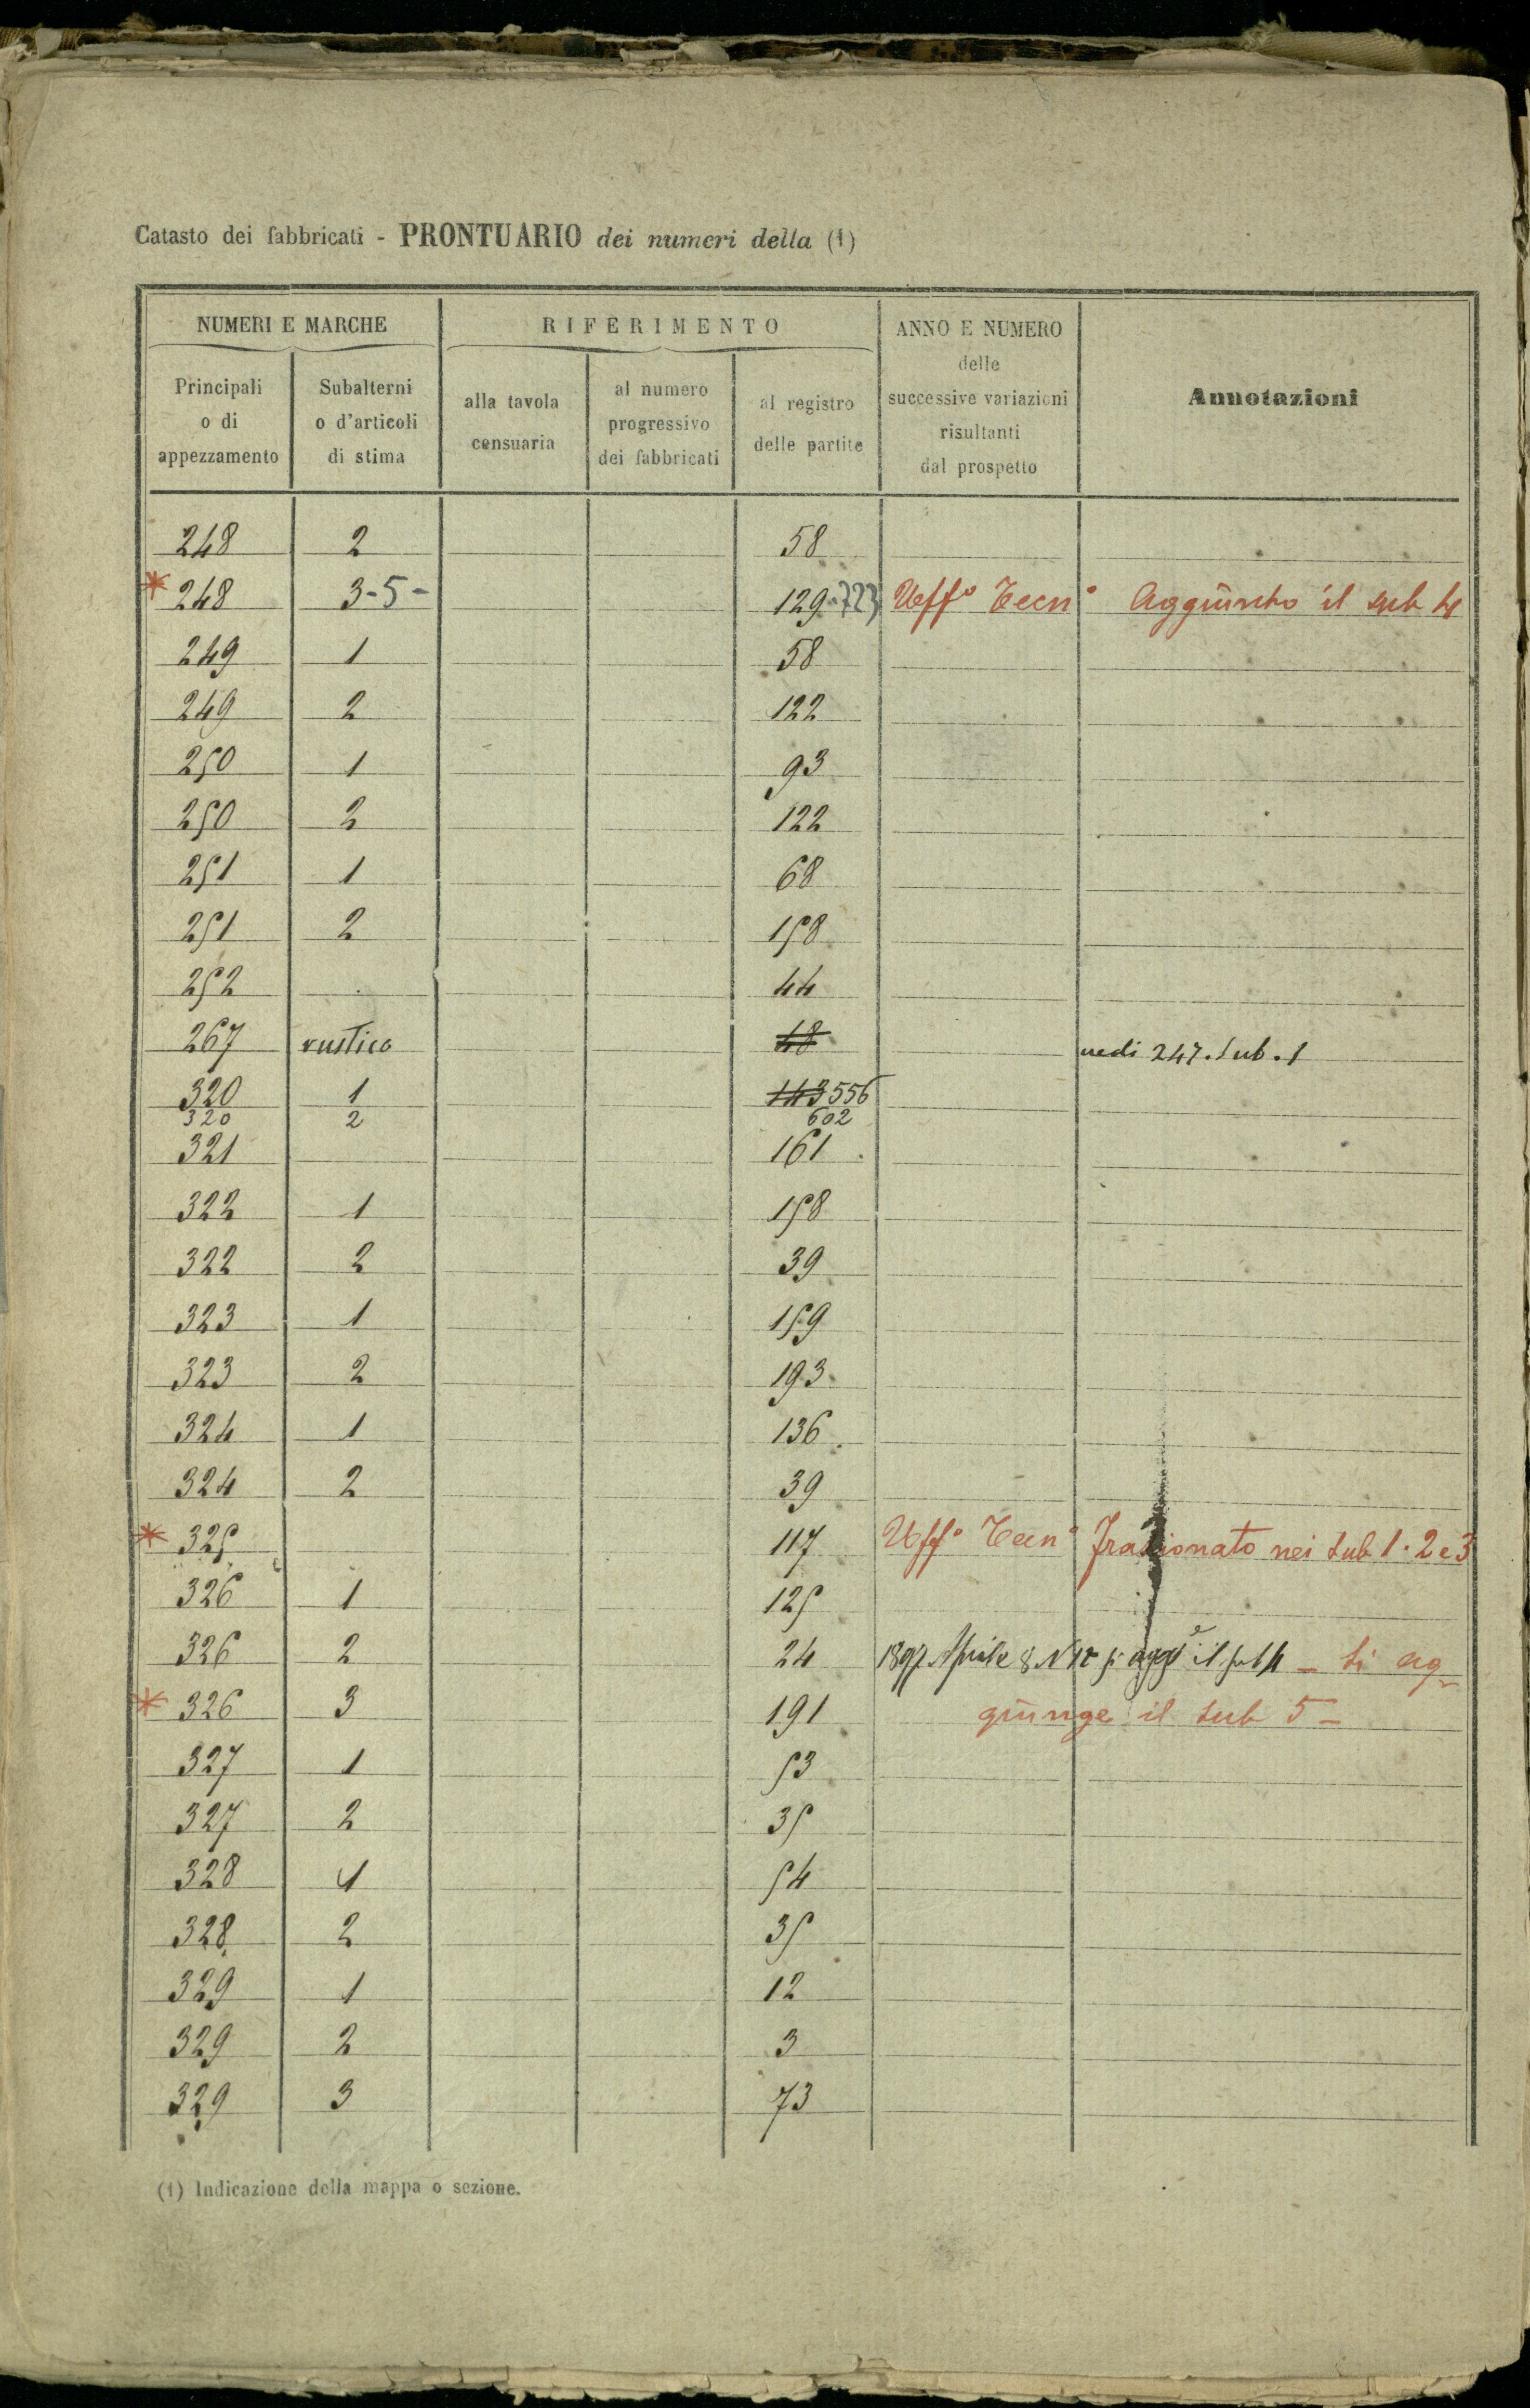 Catasto dei fabbricati - PRONTUARIO dei numeri della (1)
NUMERI E MARCHE
RIFERIMENTO
ANNO E NUMERO
delle
successive variazioni
risultanti
dal prospetto
Annotazioni
Principali
o di
appezzamento
Subalterni
o d'articoli
di stima
alla tavola
censuaria
al numero
progressivo
dei fabbricati
al registro
delle partite
248 2 58
* 248 3-5- 129-723 Uff° Tecn° Aggiunto il sub 4
249 1 58
249 2 122
250 1 93
250 2 122
251 1 68
251 2 158
252 44
267 rustico 48 vedi 247. Sub. 1
320 1 143 556
320 2 602
321 161
322 1 158
322 2 39
323 1 159
323 2 193
324 1 136
324 2 39
* 325 117 Uff° Tecn° Frazionato nei Sub 1. 2 e 3
326 1 125
326 2 24 1897 Aprile 8 N si agge il sub 4 - Si ag-
* 326 3 191 giunge il Sub 5 -
327 1 53
327 2 35
328 1 54
328 2 35
329 1 12
329 2 3
329 3 73
(1) Indicazione della mappa o sezione.